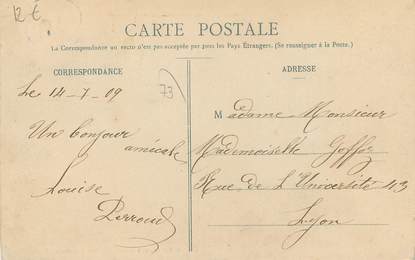 12 €
CARTE POSTALE
La Correspondance au recto n'est pas acceptée par tous les Pays Étrangers. (Se renseigner à la Poste.)
CORRESPONDANCE
Le 14-7-09
73
Un bonjour
amicale
Louise
Perroud
ADRESSE
Madame Monsieur
Mademoiselle
Rue de l'Université 43
Lyon